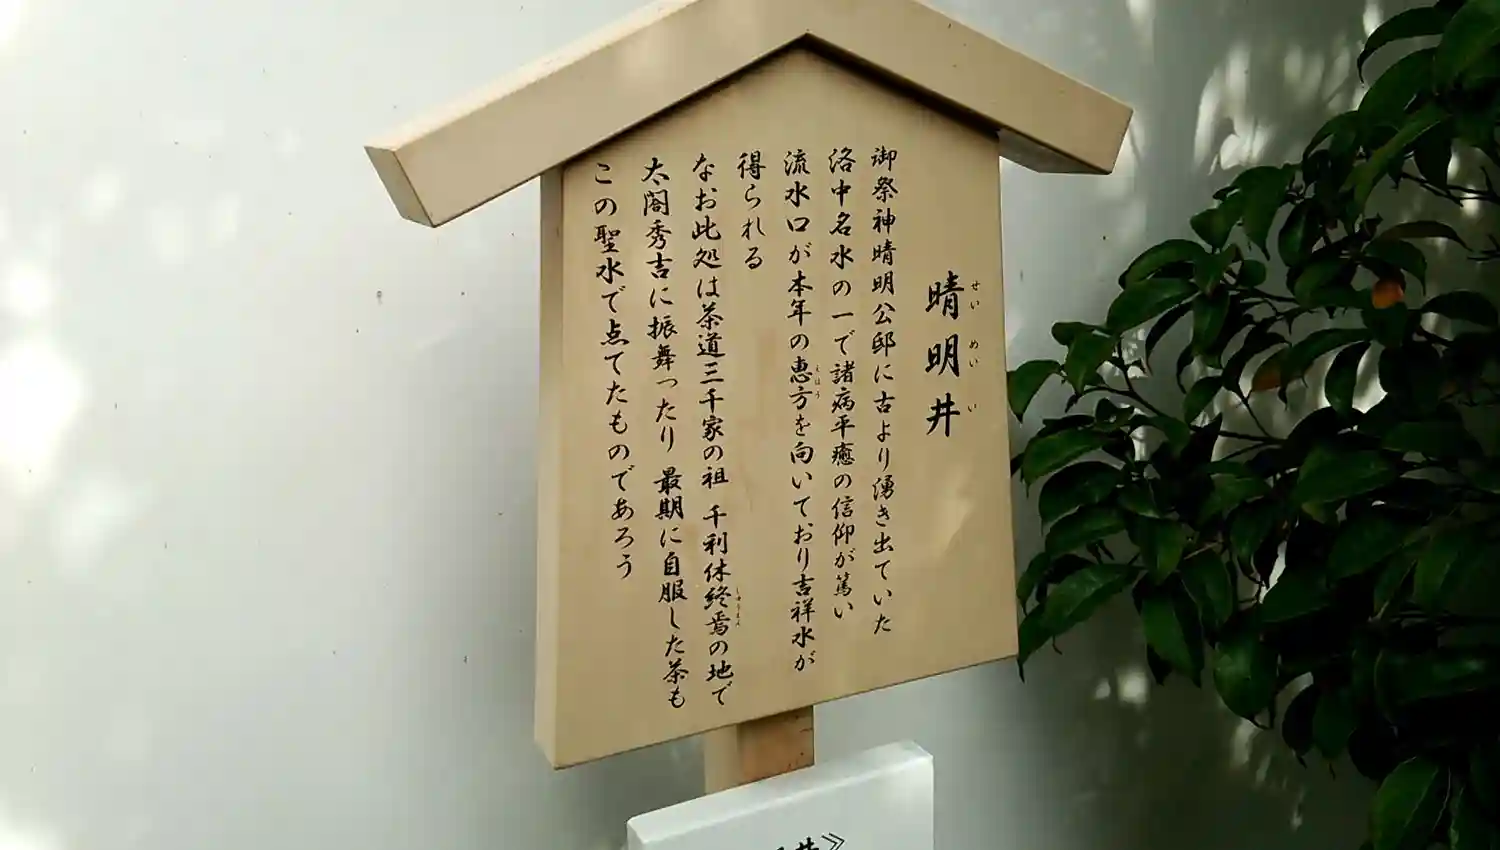 晴明井
せいめいい
御祭神晴明公邸に古より湧き出ていた
洛中名水の一で諸病平癒の信仰が篤い
流水口が本年の恵方を向いており吉祥水が
えほう
得られる
なお此処は茶道三千家の祖 千利休終焉の地で
しゅうえん
太閤秀吉に振舞ったり 最期に自服した茶も
この聖水で点てたものであろう
井》